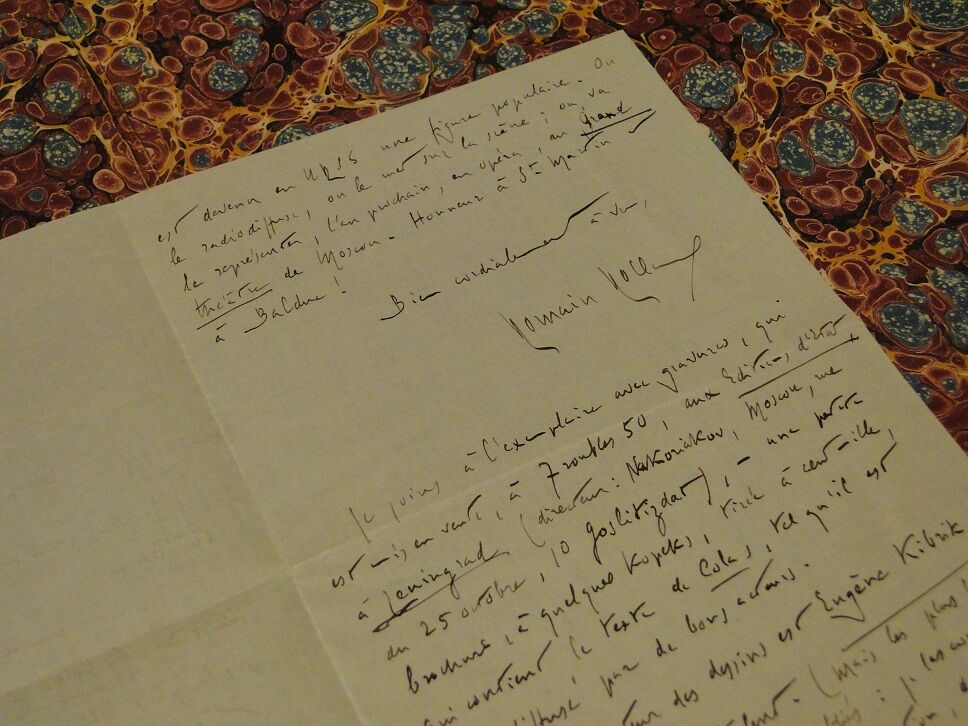 est devenu en URSS une figure populaire. On
le radiodiffuse, on le met sur la scène ; on va
le représenter, l'an prochain, en opéra, au Grand
théâtre de Moscou. Honneur à St Martin
à Balduc !
Bien cordialement à vous,
Romain Rolland
Je joins à l'exemplaire avec gravures, qui
est mis en vente, à 7 roubles 50, aux Editions d'Etat
à Leningrad (directeur: Nakoriakov, Moscou, rue
du 25 octobre, 10 Goslitizdat), – une petite
brochure, à quelques kopeks, tirée à cent-mille,
qui contient le texte de Colas, tel qu'il est
diffusé par de bons acteurs.
des dessins est Eugène Kibrik
(mais les plus